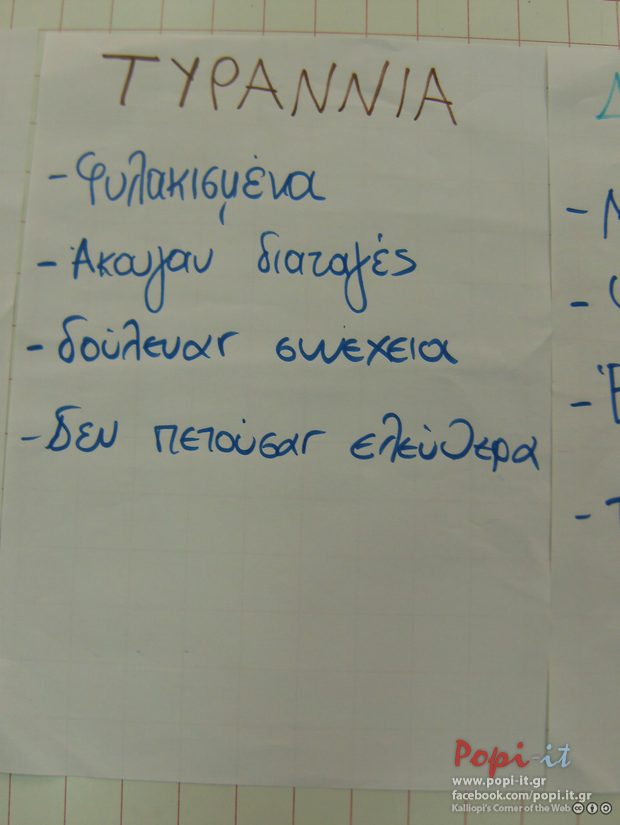 ΤΥΡΑΝΝΙΑ
- Φυλακισμένα
- Άκουγαν διαταγές
- δούλευαν συνέχεια
- Δεν πετούσαν ελεύθερα
Popi-it
www.popi-it.gr
facebook.com/popi.it.gr
Kalliopi's Corner of the Web